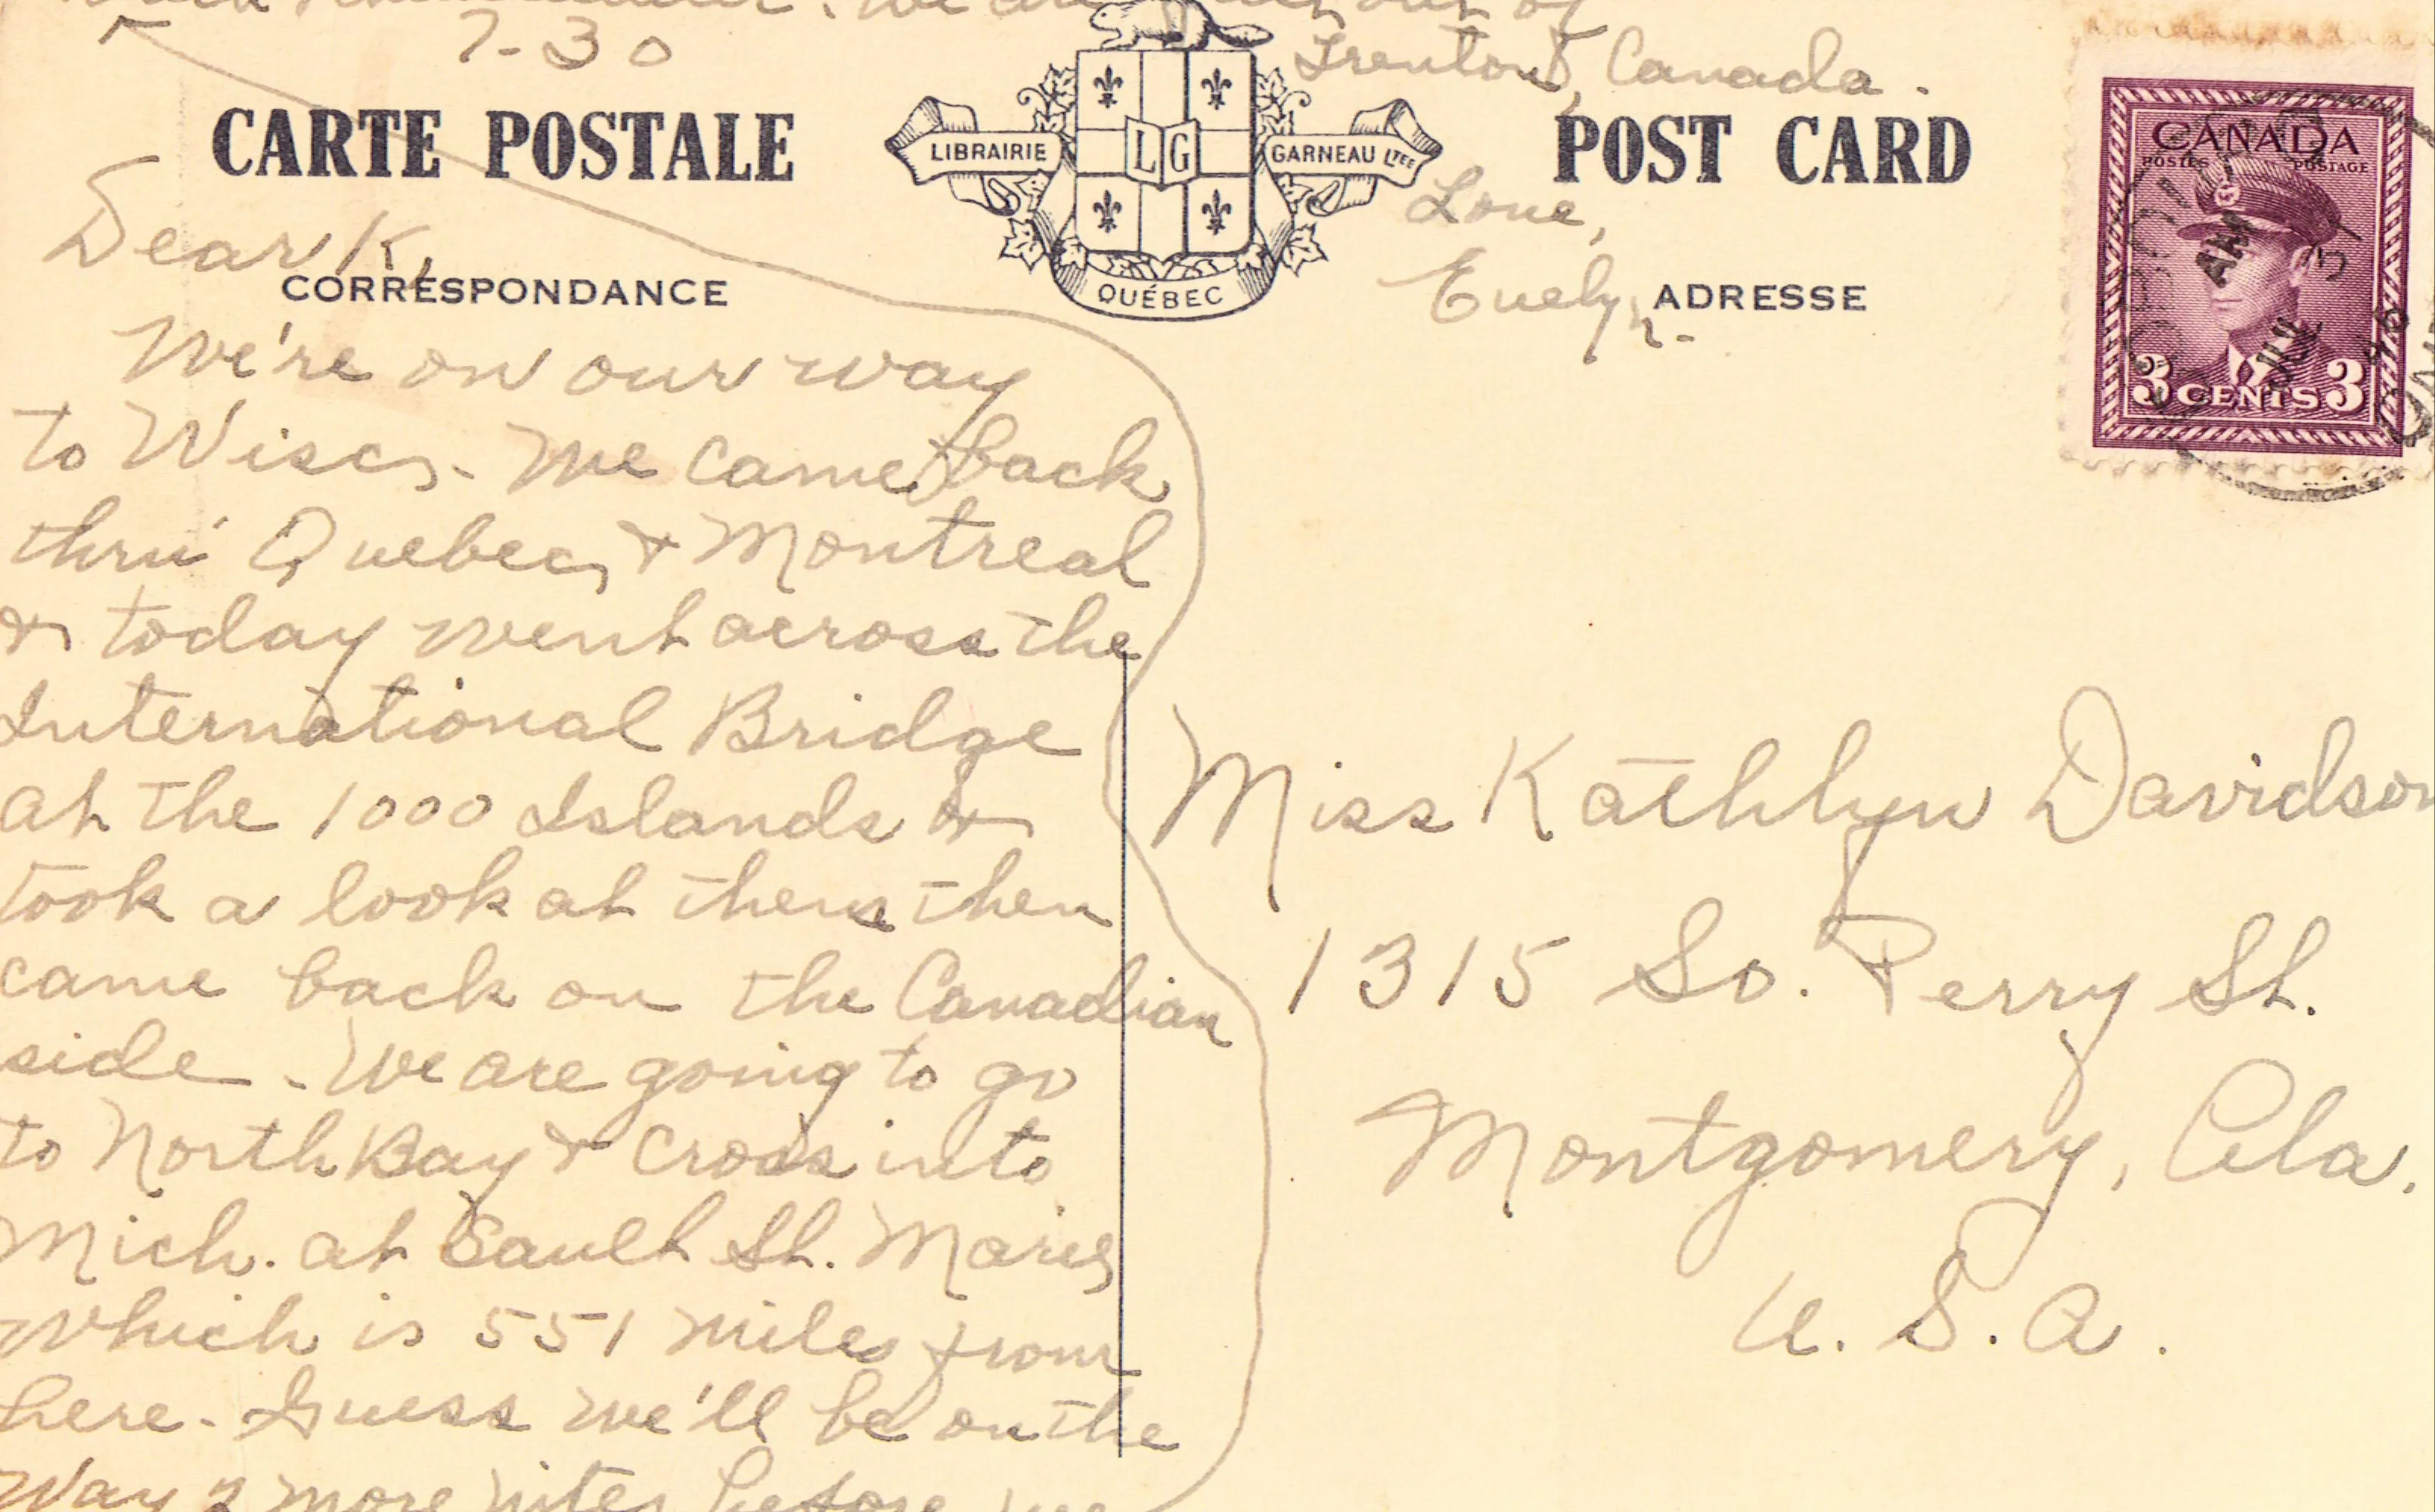 We are
of
7-30
Trenton, Canada.
CARTE POSTALE
LIBRAIRIE LG GARNEAU LTÉE
QUÉBEC
POST CARD
CANADA
POSTES POSTAGE
3 CENTS 3
AM
JUL 31
46
Love,
Evelyn.
CORRESPONDANCE
ADRESSE
Dear K,
We're on our way
to Wisc. We came back
thru' Quebec, & Montreal
& today went across the
International Bridge
at the 1000 Islands &
took a look at them then
came back on the Canadian
side. We are going to go
to North Bay & cross into
Mich. at Sault St. Marie
which is 551 miles from
here. Guess we'll be on the
way 2 more nites before we
Miss Kathlyn Davidson
1315 So. Perry St.
Montgomery, Ala.
U. S. A.